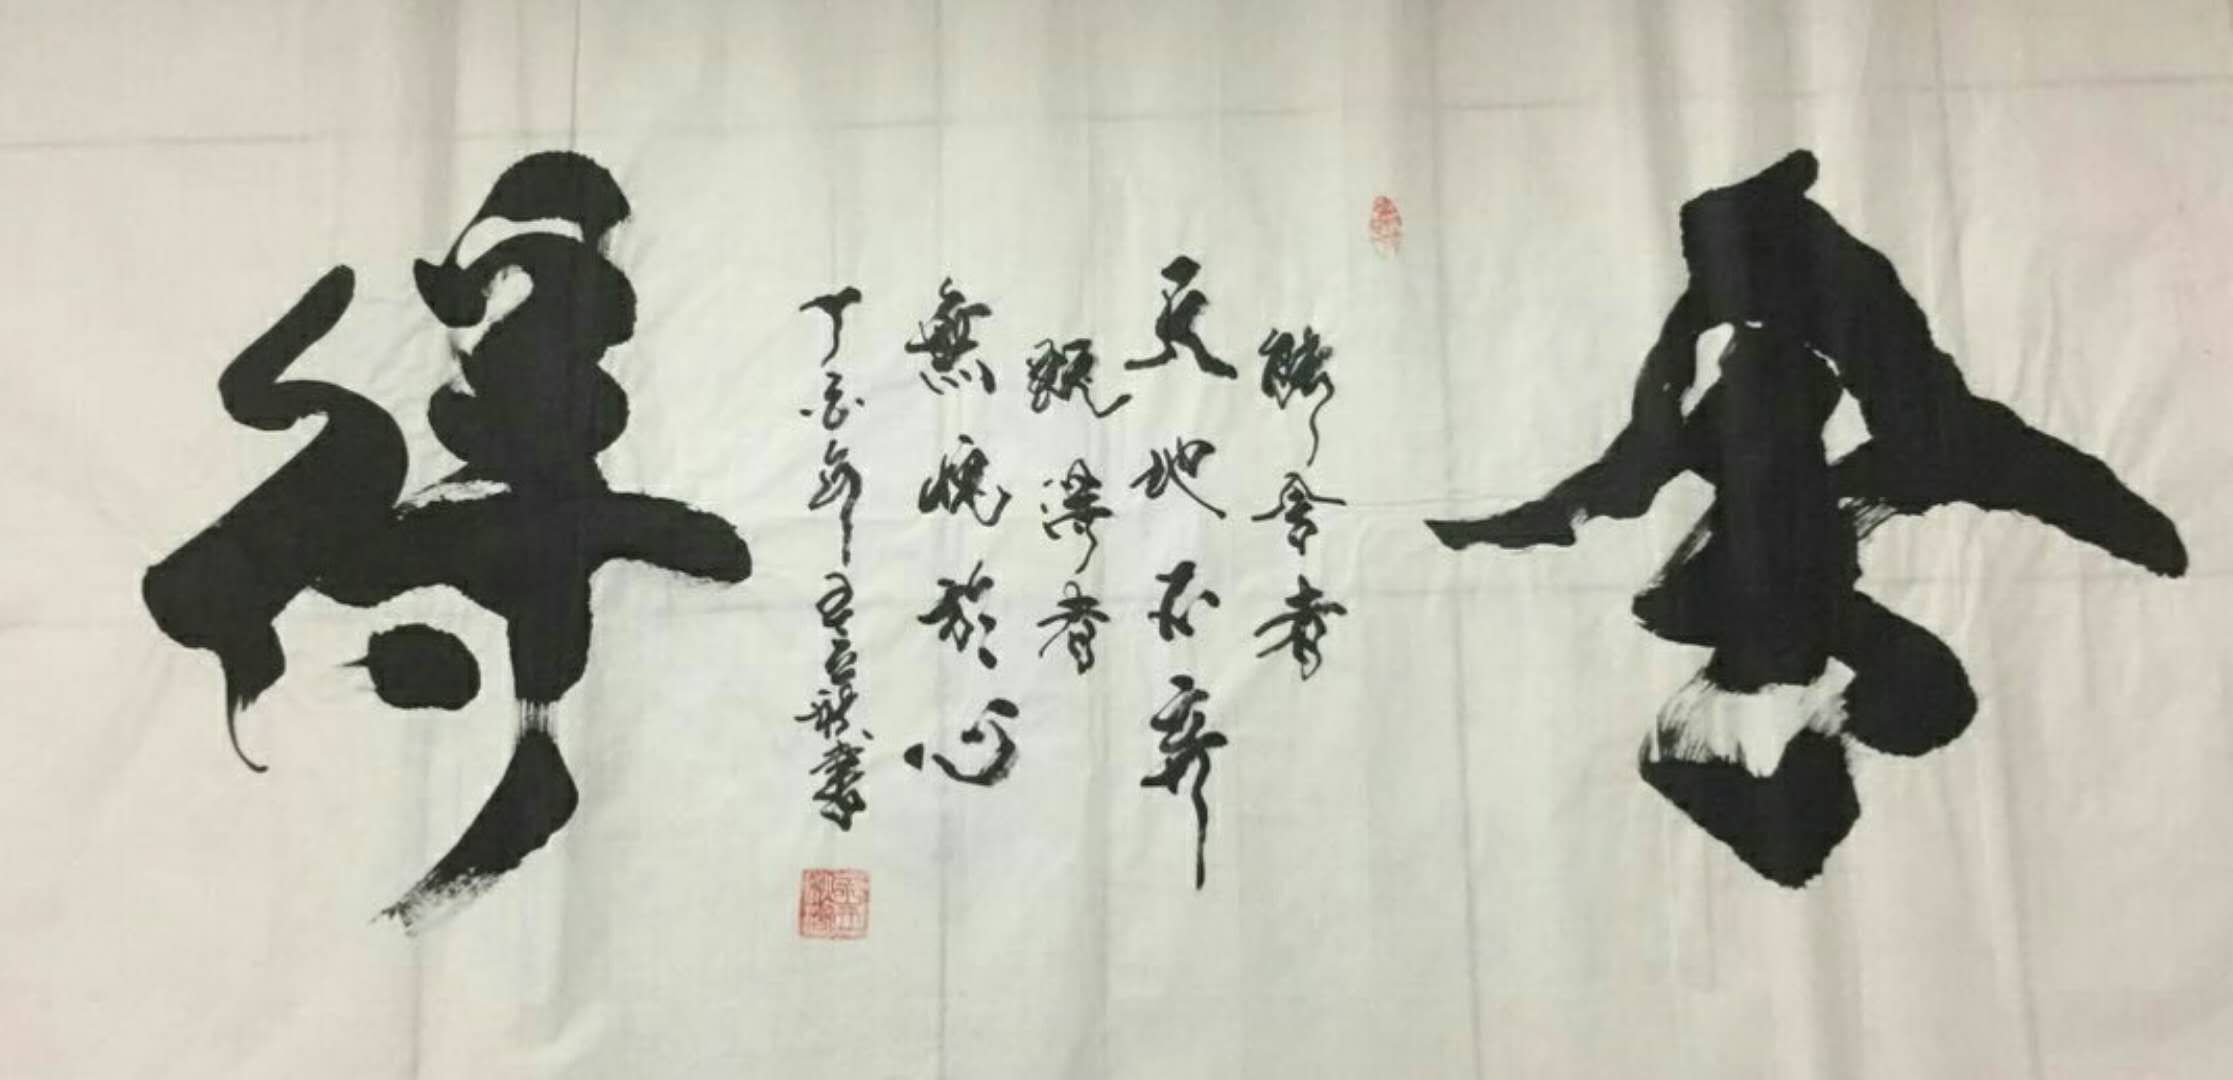 舍
能舍者
天地不弃
愿得者
無愧於心
丁酉年
書
得